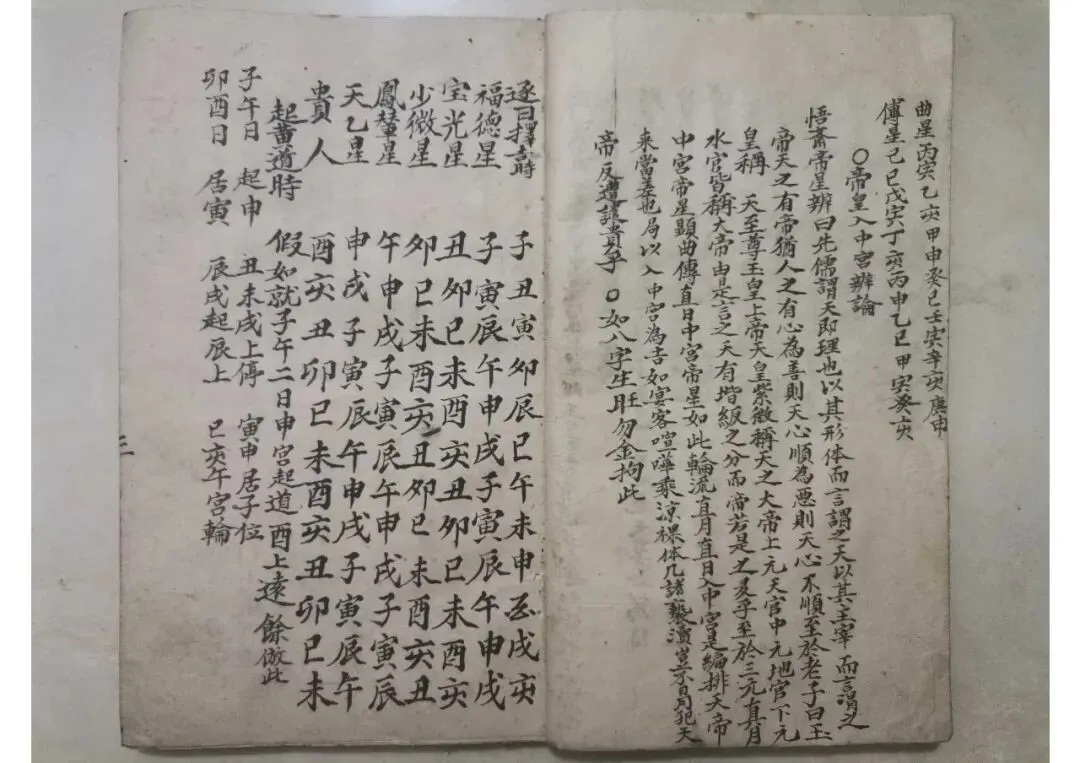 曲星丙寅乙亥甲申癸巳壬寅辛亥庚申
傅星己巳戊寅丁亥丙申乙巳甲寅癸亥
○帝皇入中宮辨論
悟齋帝星辨曰先儒謂天即理也以其形体而言謂之天以其主宰而言謂之
帝天之有帝猶人之有心為善則天心順為惡則天心不順至於老子曰玉
皇稱 天至尊玉皇上帝天皇紫微稱天之大帝上元天官中元地官下元
水官皆稱大帝由是言之天有堦級之分而帝若是之及乎至於三元直月
中宮帝星顯曲傅直日中宮帝星如此輪流直月直日入中宮是編排天帝
来當差也局以入中宮為吉如宴客喧嘩乘涼裸体凡諸褻瀆豈不自犯天
帝反遭譴責乎 ○如八字生旺勿金拘此
逐日擇時 子丑寅卯辰巳午未申酉戌亥
福德星 子寅辰午申戌子寅辰午申戌
宝光星 丑卯巳未酉亥丑卯巳未酉亥
少微星 卯巳未酉亥丑卯巳未酉亥丑
鳳輦星 午申戌子寅辰午申戌子寅辰
天乙星 申戌子寅辰午申戌子寅辰午
貴人 酉亥丑卯巳未酉亥丑卯巳未
起黄道時 假如就子午二日申宮起道酉上遠餘倣此
子午日 起申 丑未戌上停 寅申居子位
卯酉日 居寅 辰戌起辰上 巳亥午宮輪
三